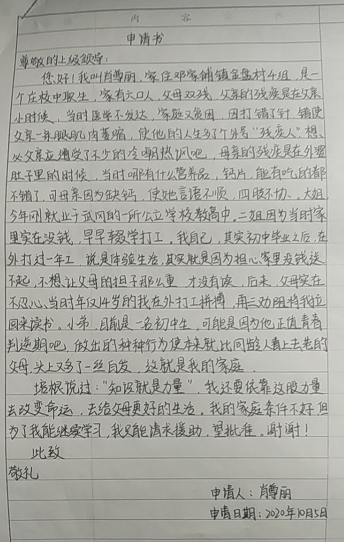 内 容
申请书
尊敬的上级领导:
您好!我叫肖尊丽,家住邓家铺镇金盘村4组,是一
个在校中职生,家有六口人,父母双残,父亲的残疾是在父亲
小时候,当时医学不发达,家庭又贫困,因打错了针,错使
父亲一条腿肌肉萎缩,使他的人生多了个外号"残废人"想
必父亲也遭受了不少的冷嘲热讽吧,母亲的残疾是在外婆
肚子里的时候,当时哪有什么营养品,钙片,能有吃的都
不错了,可母亲因为缺钙,使她言语不顺,四肢不协、大姐
今年刚就业于武冈的一所公立学校教高中,二姐因为当时家
里实在没钱,早早辍学打工,我自己,其实初中毕业之后,在
外打过一年工,说是体验生活,其实就是因为担心家里没钱读
不起,不想让父母的担子那么重,才没有读,后来,父母实在
不忍心,当时年仅14岁的我在外打工拼搏,再三劝阻将我拉
回来读书,小弟,目前是一名初中生,可能是因为他正值青春
判逆期吧,做出的种种行为使本来就比同龄人看上去老的
父母,头上又多了一些白发,这就是我的家庭.
培根说过:"知识就是力量",我还要依靠这股力量
去改变命运,去给父母更好的生活。我的家庭条件不好但
为了我能继续学习,我只能请求援助,望批准。谢谢!
此致
敬礼
申请人:肖尊丽
申请日期:2020年10月5日